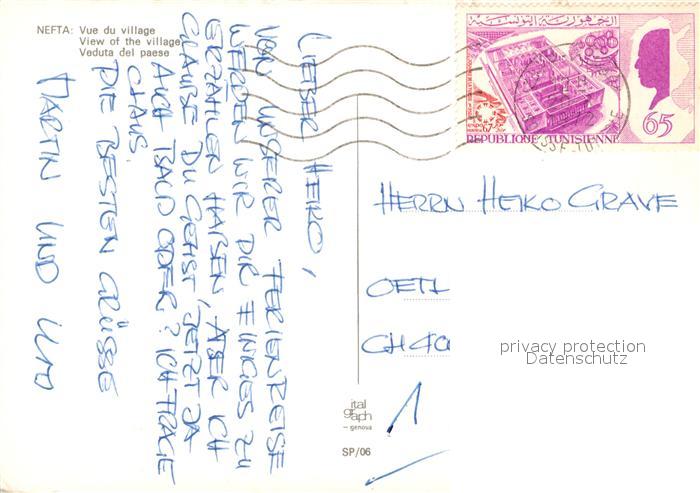 NEFTA: Vue du village
View of the village
Veduta del paese
LIEBER HEIKO,
VON UNSERER FERIENREISE
WERDEN WIR DIR EINIGES ZU
ERZÄHLEN HABEN, ABER ICH
GLAUBE DU GEHST JETZT JA
AUCH BALD ODER? ICH FRAGE
CHAUS.
DIE BESTEN GRÜSSE
MARTIN UND
الجمهورية التونسية
expo
67
REPUBLIQUE TUNISIENNE
65
HERRN HEIKO GRAVE
OETL
CH 40
privacy protection
Datenschutz
ital
graph
– genova
SP/06